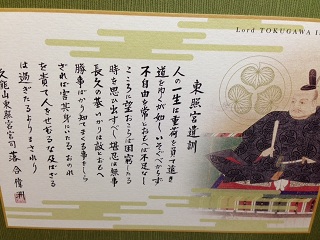 Lord TOKUGAWA I
東照宮遺訓
人の一生は重荷を負て遠き
道をゆくが如しいそぐべからず
不自由を常とおもへば不足なし
こころに望おこらば困窮したる
時を思ひ出すべし堪忍は無事
長久の基いかりは敵とおもへ
勝事ばかり知てまくる事をしら
ざれば害其身にいたるおのれ
を責て人をせむるな及ばざる
は過ぎたるよりまされり
久能山東照宮宮司 落合偉洲